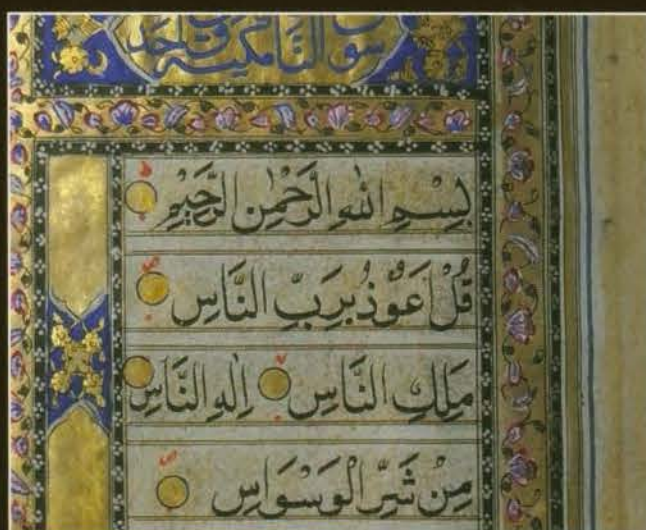 سورة الناس مكية
بِسْمِ اللهِ الرَّحْمٰنِ الرَّحِيْمِ
قُلْ اَعُوْذُ بِرَبِّ النَّاسِ
مَلِكِ النَّاسِ اِلٰهِ النَّاسِ
مِنْ شَرِّ الْوَسْوَاسِ